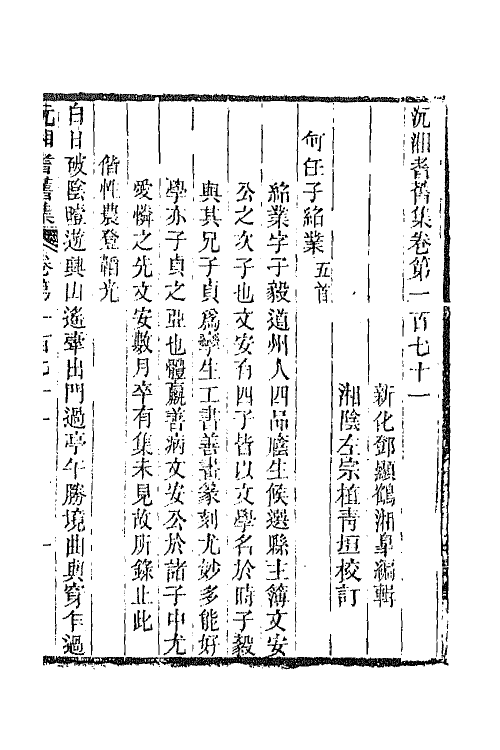 沅湘耆舊集卷第一百七十一
新化鄧顯鶴湘臯編輯
湘陰左宗植靑垣校訂
何任子紹業五首
紹業字子毅道州人四品廕生候選縣主簿文安
公之次子也文安有四子皆以文學名於時子毅
與其兄子貞爲孿生工書善畫篆刻尤妙多能好
學亦子貞之亞也體羸善病文安公於諸子中尤
愛憐之先文安數月卒有集未見故所錄止此
偕性農登韜光
白日破陰曀遊興山遙牽出門過亭午勝境曲與穿乍過
沅湘耆舊集 卷第一百七十一 一